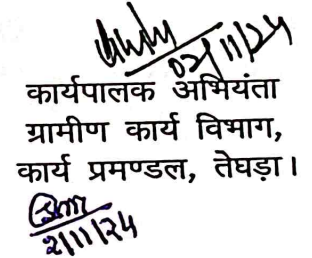 02/11/24
कार्यपालक अभियंता
ग्रामीण कार्य विभाग,
कार्य प्रमण्डल, तेघड़ा।
2/11/24